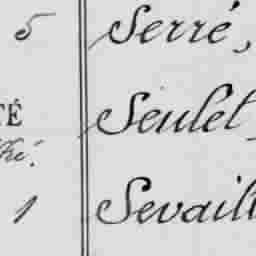 5 Serré,
TÉ Seulet
1 Sevaill